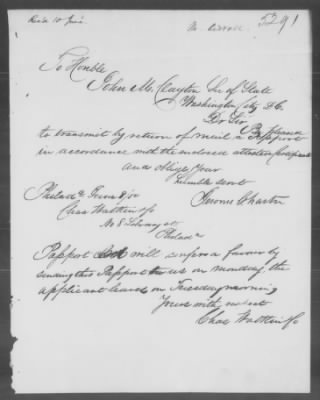 Recd 10 June
5291
To Honble
John M. Clayton Sec of State
Washington City D.C.
Dr Sir
Be pleased
to transmit by return of mail a Passport
in accordance with the enclosed
and oblige Your
humble servt
Philada June 8/50
No 8 Library St
Philada
Passport will confer a favour by
sending the Passport to us on monday the
applicant leaves on Tuesday morning
Yours with respect